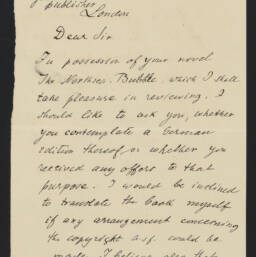 publisher
London
Dear Sir
In possession of your novel
The Northsea Bubble, which I shall
take pleasure in reviewing. I
should like to ask you, whether
you contemplate a German
edition thereof or whether you
received any offers to that
purpose. I would be inclined
to translate the book myself
if any arrangement concerning
the copyright a.s.f. could be
made. I believe also that